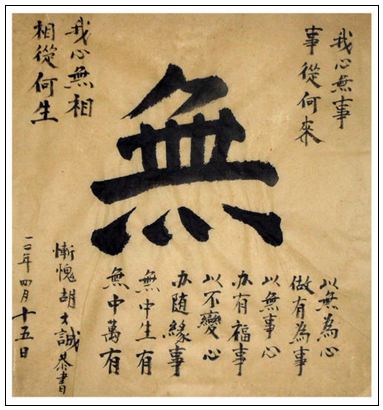 我心無事
事從何來
無
我心無相
相從何生
以無為心
做有為事
以無事心
办有福事
以不變心
办随緣事
無中生有
無中萬有
慚愧胡誠恭書
年四月十五日